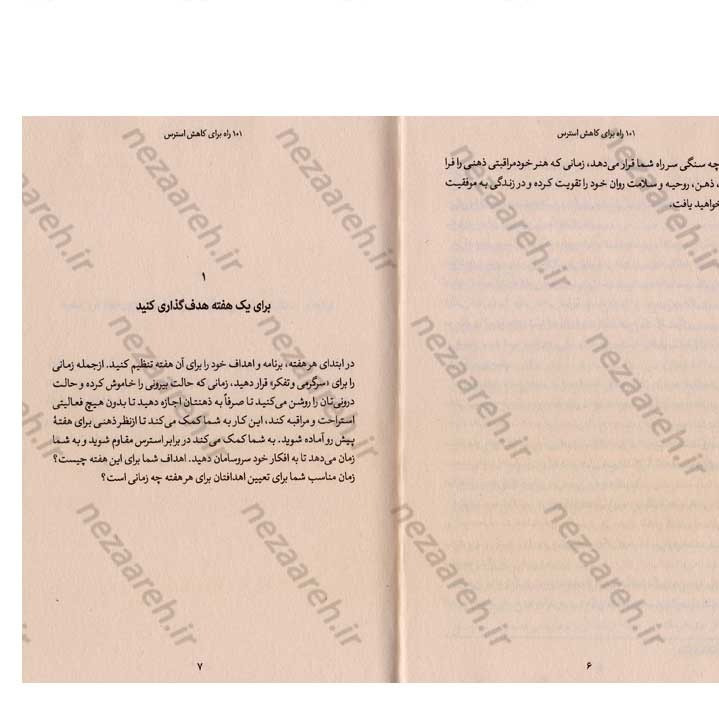 ۱۰۱ راه برای کاهش استرس
چه سنگی سر راه شما قرار می‌دهد، زمانی که هنر خودمراقبتی ذهنی را فرا
، ذهن، روحیه و سلامت روان خود را تقویت کرده و در زندگی به موفقیت
خواهید یافت.
۶
۱۰۱ راه برای کاهش استرس
۱
برای یک هفته هدف‌گذاری کنید
در ابتدای هر هفته، برنامه و اهداف خود را برای آن هفته تنظیم کنید. ازجمله زمانی
را برای «سرگرمی و تفکر» قرار دهید، زمانی که حالت بیرونی را خاموش کرده و حالت
درونی‌تان را روشن می‌کنید تا صرفاً به ذهنتان اجازه دهید تا بدون هیچ فعالیتی
استراحت و مراقبه کند، این کار به شما کمک می‌کند تا ازنظر ذهنی برای هفتهٔ
پیش رو آماده شوید. به شما کمک می‌کند در برابر استرس مقاوم شوید و به شما
زمان می‌دهد تا به افکار خود سروسامان دهید. اهداف شما برای این هفته چیست؟
زمان مناسب شما برای تعیین اهدافتان برای هر هفته چه زمانی است؟
۷
nezaareh.ir
nezaareh.ir
nezaareh.ir
nezaareh.ir
nezaareh.ir
nezaareh.ir
nezaareh.ir
nezaareh.ir
nezaareh.ir
nezaareh.ir
nezaareh.ir
nezaareh.ir